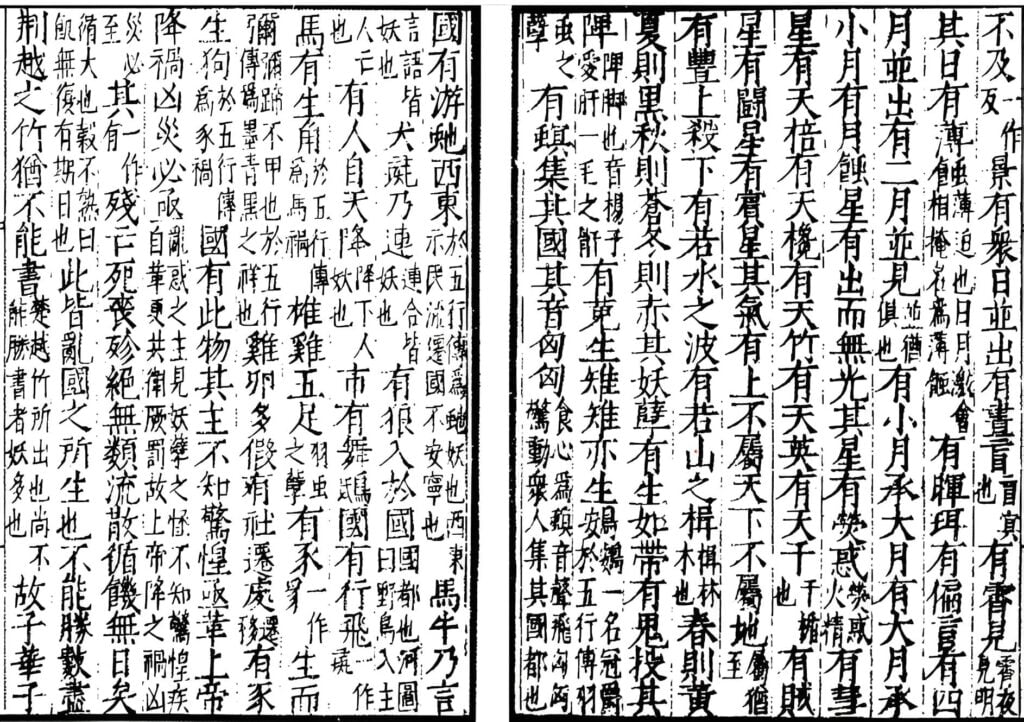 不及一作反景有眾日並出有晝盲冒冥也有霄見霄夜見明
其日有薄蝕薄迫也日月激會相掩名為薄蝕有暉珥有偏盲有四
月並出有二月並見並猶俱也有小月承大月有大月承
小月有月蝕星有出而無光其星有熒惑熒惑火精有彗
星有天棓有天欃有天竹有天英有天干干楯也有賊
星有鬭星有賓星其氣有上不屬天下不屬地屬猶至
有豐上殺下有若水之波有若山之楫楫林木也春則黃
夏則黑秋則蒼冬則赤其妖孽有生如帶有鬼投其
陴陴脚也音楊子愛骭一毛之骭有菟生雉雉亦生鴳鴳一名冠爵於五行傳羽
蟲之孽有螟集其國其音匈匈食心為螟音聲飛匈匈驚動眾人集其國都也
國有游虵西東於五行傳為虵妖也西東示民流遷國不安寧也馬牛乃言
言語皆妖也犬彘乃連連合皆妖也有狼入於國國都也河圖曰野鳥入主
人亡也有人自天降降下人妖也市有舞鴟國有行飛一作彘
馬有生角於五行傳為馬禍雄雞五足羽蟲之孽有豕一作豸生而
彌彌蹏不甲也於五行傳為墨青黑之祥也雞卵多假有社遷處遷移有豕
生狗於五行傳為豕禍國有此物其主不知驚惶亟革上帝
降禍凶災必亟亂惑之主見妖孽之怪不知驚惶疾自革更共衛厥罰故上帝降之禍凶
災必至其一作有殘亡死喪殄絕無類流散循饑無日矣
循大也穀不熟曰飢無復有期日也此皆亂國之所生也不能勝數盡
荆越之竹猶不能書楚越竹所出也尚不能勝書者妖多也故子華子